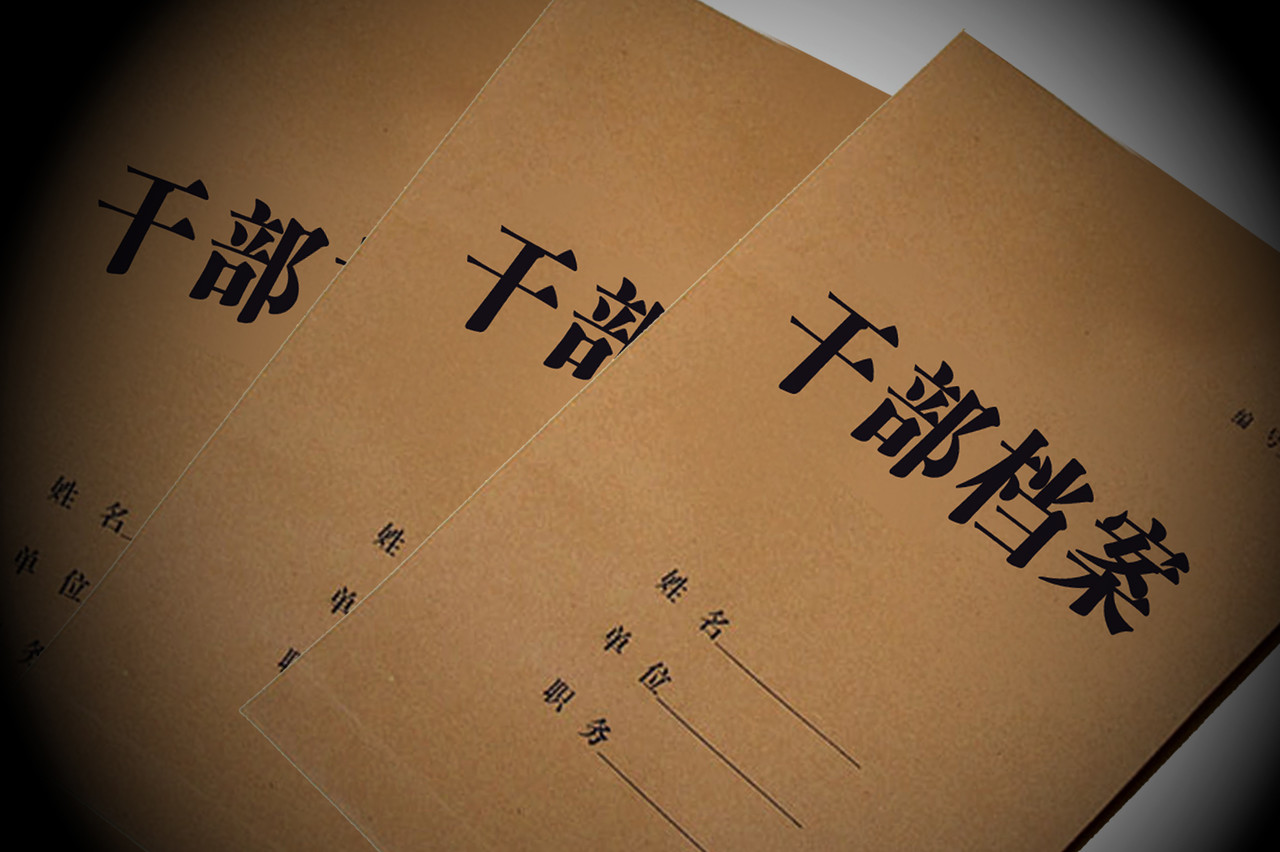 干部
姓名
单位
务
干部
姓
单
职
干部档案
编号
姓名
单位
职务